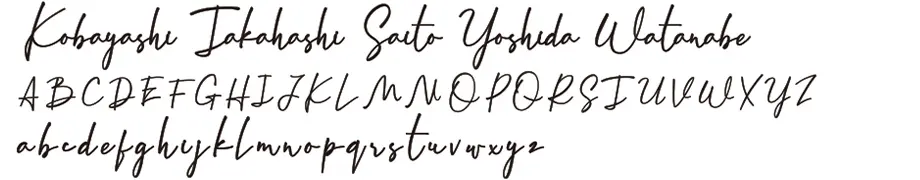 Kobayashi Takahashi Saito Yoshida Watanabe
ABCDEFGHIJKLMNOPQRSTUVWXYZ
abcdefghijklmnopqrstuvwxyz